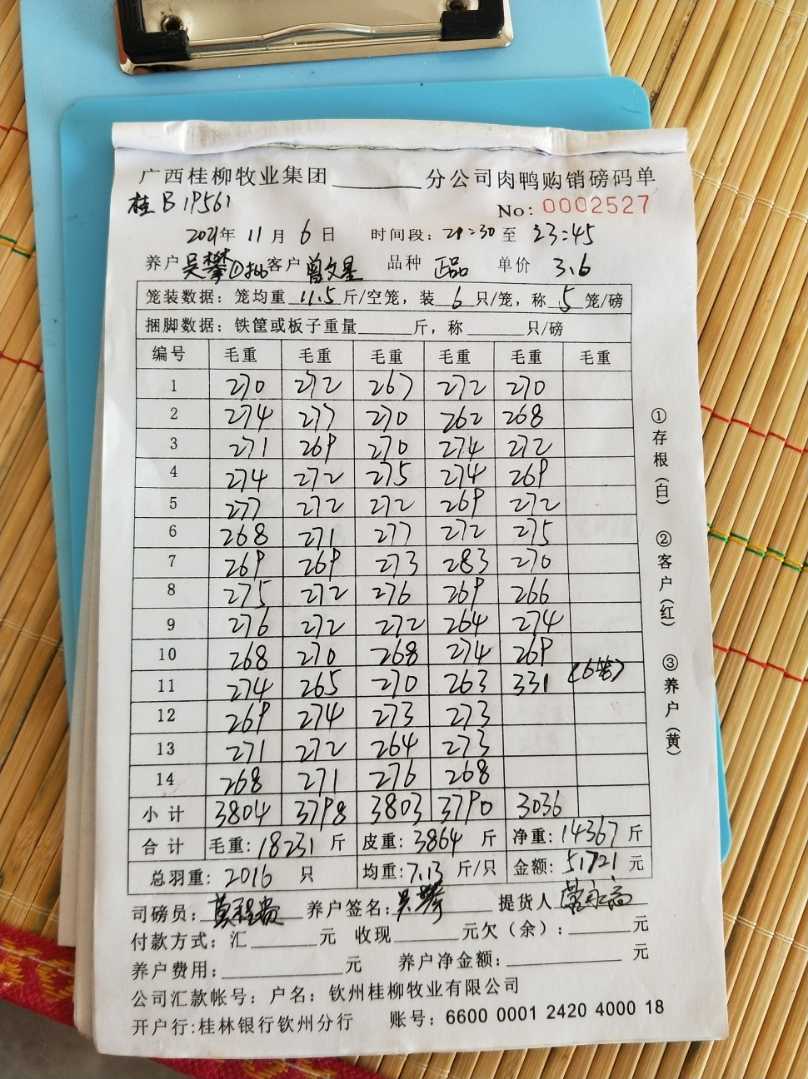 广西桂柳牧业集团______分公司肉鸭购销磅码单
桂B19561
No: 0002527
2021年 11月 6日 时间段: 21:30 至 23:45
养户 吴攀 客户 曾文星 品种 正品 单价 3.6
笼装数据: 笼均重 11.5 斤/空笼, 装 6 只/笼, 称 5 笼/磅
捆脚数据: 铁筐或板子重量______斤, 称______只/磅
编号 毛重 毛重 毛重 毛重 毛重 毛重
1 270 272 267 272 270
2 274 277 270 262 268
3 271 269 270 274 272
4 274 272 275 274 269
5 277 272 272 269 272
6 268 271 277 272 275
7 269 269 273 283 270
8 275 272 276 269 266
9 276 272 272 264 274
10 268 270 268 274 269
11 274 265 270 263 331 (6笼)
12 269 274 273 273
13 271 272 264 273
14 268 271 276 268
小计 3804 3798 3803 3790 3036
合计 毛重: 18231 斤 皮重: 3864 斤 净重: 14367 斤
总羽重: 2016 只 均重: 7.13 斤/只 金额: 51721 元
司磅员: 养户签名: 吴攀 提货人
付款方式: 汇______元 收现______元欠(余): ______元
养户费用: ______元 养户净金额: ______元
公司汇款帐号: 户名: 钦州桂柳牧业有限公司
开户行: 桂林银行钦州分行 账号: 6600 0001 2420 4000 18
①存根(白) ②客户(红) ③养户(黄)